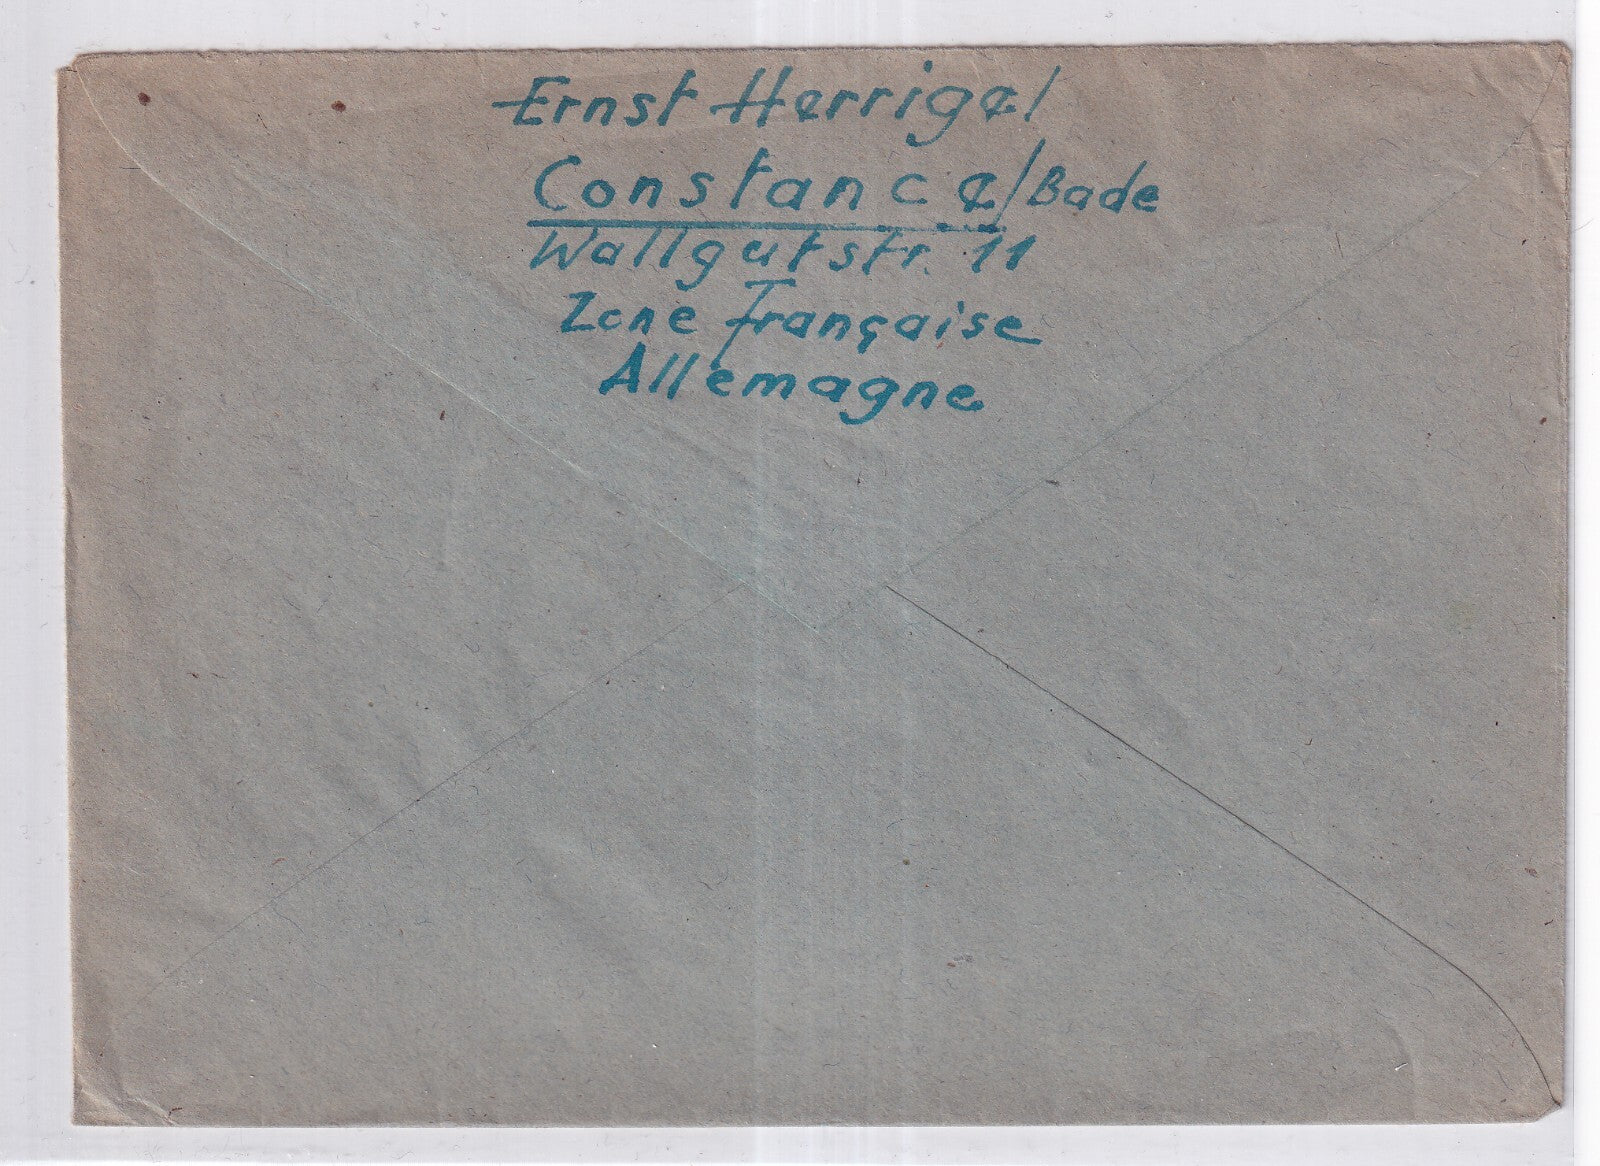 Ernst Herrigel
Constance/Bade
Wallgutstr. 11
Zone Française
Allemagne